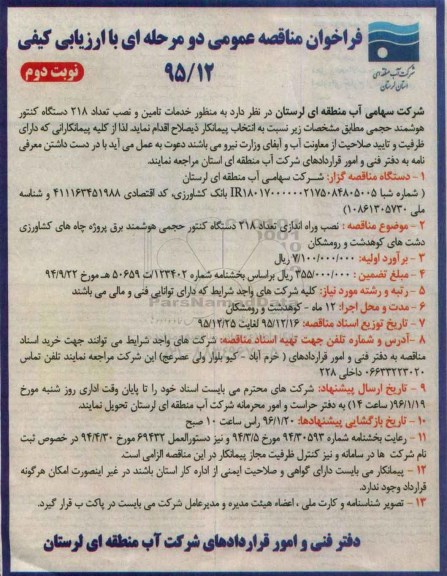 فراخوان مناقصه عمومی دو مرحله ای با ارزیابی کیفی
۹۵/۱۲
نوبت دوم
شرکت آب منطقه ای
استان لرستان
شرکت سهامی آب منطقه ای لرستان در نظر دارد به منظور خدمات تامین و نصب تعداد ۲۱۸ دستگاه کنتور
هوشمند حجمی مطابق مشخصات زیر نسبت به انتخاب پیمانکار ذیصلاح اقدام نماید. لذا از کلیه پیمانکارانی که دارای
ظرفیت و تایید صلاحیت از معاونت آب و آبفای وزارت نیرو می باشند دعوت به عمل می آید با در دست داشتن معرفی
نامه به دفتر فنی و امور قراردادهای شرکت آب منطقه ای استان مراجعه نمایند.
۱ - دستگاه مناقصه گزار: شرکت سهامی آب منطقه ای لرستان
( شماره شبا IR۱۸۰۱۷۰۰۰۰۰۰۲۱۷۵۰۸۴۸۰۵۰۰۵ بانک کشاورزی، کد اقتصادی ۴۱۱۱۶۳۴۵۱۹۸۸ و شناسه
ملی ۱۰۸۶۱۳۰۵۷۳۰)
۲ - موضوع مناقصه : نصب وراه اندازی تعداد ۲۱۸ دستگاه کنتور حجمی هوشمند برق پروژه چاه های کشاورزی
دشت های کوهدشت و رومشکان
۳ - برآورد اولیه: ۷/۱۰۰/۰۰۰/۰۰۰ ریال
۴ - مبلغ تضمین : ۳۵۵/۰۰۰/۰۰۰ ریال براساس بخشنامه شماره ۱۲۳۴۰۲/ت ۵۰۶۵۹ هـ مورخ ۹۴/۹/۲۲
۵ - رتبه و رشته مورد نیاز: کلیه شرکت های واجد شرایط که دارای توانایی فنی و مالی می باشند
۶ - مدت و محل اجرا: ۱۲ ماه - کوهدشت و رومشکان
۷ - تاریخ توزیع اسناد مناقصه: ۹۵/۱۲/۱۶ لغایت ۹۵/۱۲/۲۵
۸ -آدرس و شماره تلفن جهت تهیه اسناد مناقصه: شرکت های واجد شرایط می توانند جهت خرید اسناد
مناقصه به دفتر فنی و امور قراردادهای ( خرم آباد - کیو بلوار ولی عصر(عج) این شرکت مراجعه نمایند تلفن تماس
۰۶۶۳۳۲۲۳۰۲۰ داخلی ۲۲۸
۹ - تاریخ ارسال پیشنهاد: شرکت های محترم می بایست اسناد خود را تا پایان وقت اداری روز شنبه مورخ
۹۶/۱/۱۹( ساعت ۱۴) به دفتر حراست و امور محرمانه شرکت آب منطقه ای لرستان تحویل نمایند.
۱۰ - تاریخ بازگشایی پیشنهادها: ۹۶/۱/۲۰ راس ساعت ۱۰ صبح
۱۱ - رعایت بخشنامه شماره ۹۴/۳۰۵۹۳ مورخ ۹۴/۳/۵ و نیز دستورالعمل ۶۹۴۳۲ مورخ ۹۴/۴/۳۰ در خصوص ثبت
نام شرکت ها در سامانه و نیز کنترل ظرفیت مجاز پیمانکار در این مناقصه الزامی است.
۱۲ - پیمانکار می بایست دارای گواهی و صلاحیت ایمنی از اداره کار استان باشند در غیر اینصورت امکان هرگونه
قرارداد وجود ندارد.
۱۳ - تصویر شناسنامه و کارت ملی ، اعضاء هیئت مدیره و مدیرعامل شرکت می بایست در پاکت ب قرار گیرد.
دفتر فنی و امور قراردادهای شرکت آب منطقه ای لرستان